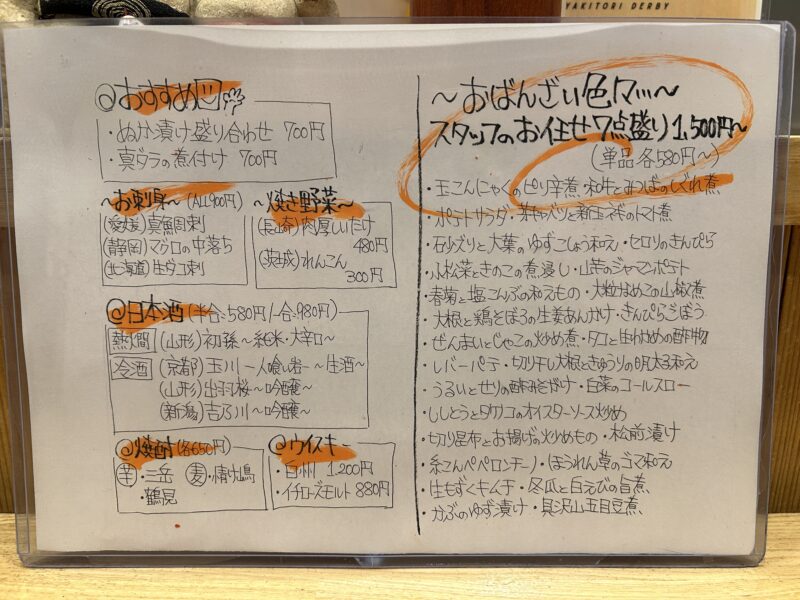 YAKITORI DERBY
おすすめ
・ぬか漬け盛り合わせ 700円
・真ダラの煮付け 700円
〜お刺身〜 (ALL900円)
(愛媛)真魚周刺
(静岡)マグロの中落ち
(北海道)生ダコ刺
〜焼き野菜〜
(長崎)肉厚しいたけ
480円
(茨城)れんこん
300円
@日本酒 (半合:580円/一合:980円)
熱燗 (山形)初孫〜純米・大辛口〜
冷酒 (京都)玉川 〜人喰い岩〜 〜生酒〜
(山形)出羽桜〜吟醸〜
(新潟)吉乃川〜吟醸〜
@焼酎 (各650円)
芋・三岳 麦・情け嶋
・鶴見
@ウイスキー
・白州 1,200円
・イチローズモルト 880円
〜おばんざい色々…〜
スタッフのお任せ7点盛り1,500円〜
(単品 各580円〜)
・玉こんにゃくのピリ辛煮・和牛とみつばのしぐれ煮
・ポテトサラダ・芽キャベツと新玉ネギのトマト煮
・石ズリと大葉のゆずこしょう和え・セロリのきんぴら
・小松菜ときのこの煮浸し・山芋のジャーマンポテト
・春菊と塩こんぶの和えもの・大粒なめこの山椒煮
・大根と鶏そぼろの生姜あんかけ・きんぴらごぼう
・ぜんまいとじゃこの炒め煮・タコと生わかめの酢の物
・レバーパテ・切り干し大根ときゅうりの明太る和え
・うるいとせりの酢みそがけ・白菜のコールスロー
・ししとうとタケノコのオイスターソース炒め
・切り昆布とお揚げの炒めもの・松前漬け
・糸こんペペロンチーノ・ほうれん草のゴマ和え
・生もずくキムチ・冬瓜と白えびの旨煮
・かぶのゆず漬け・具沢山五目豆煮